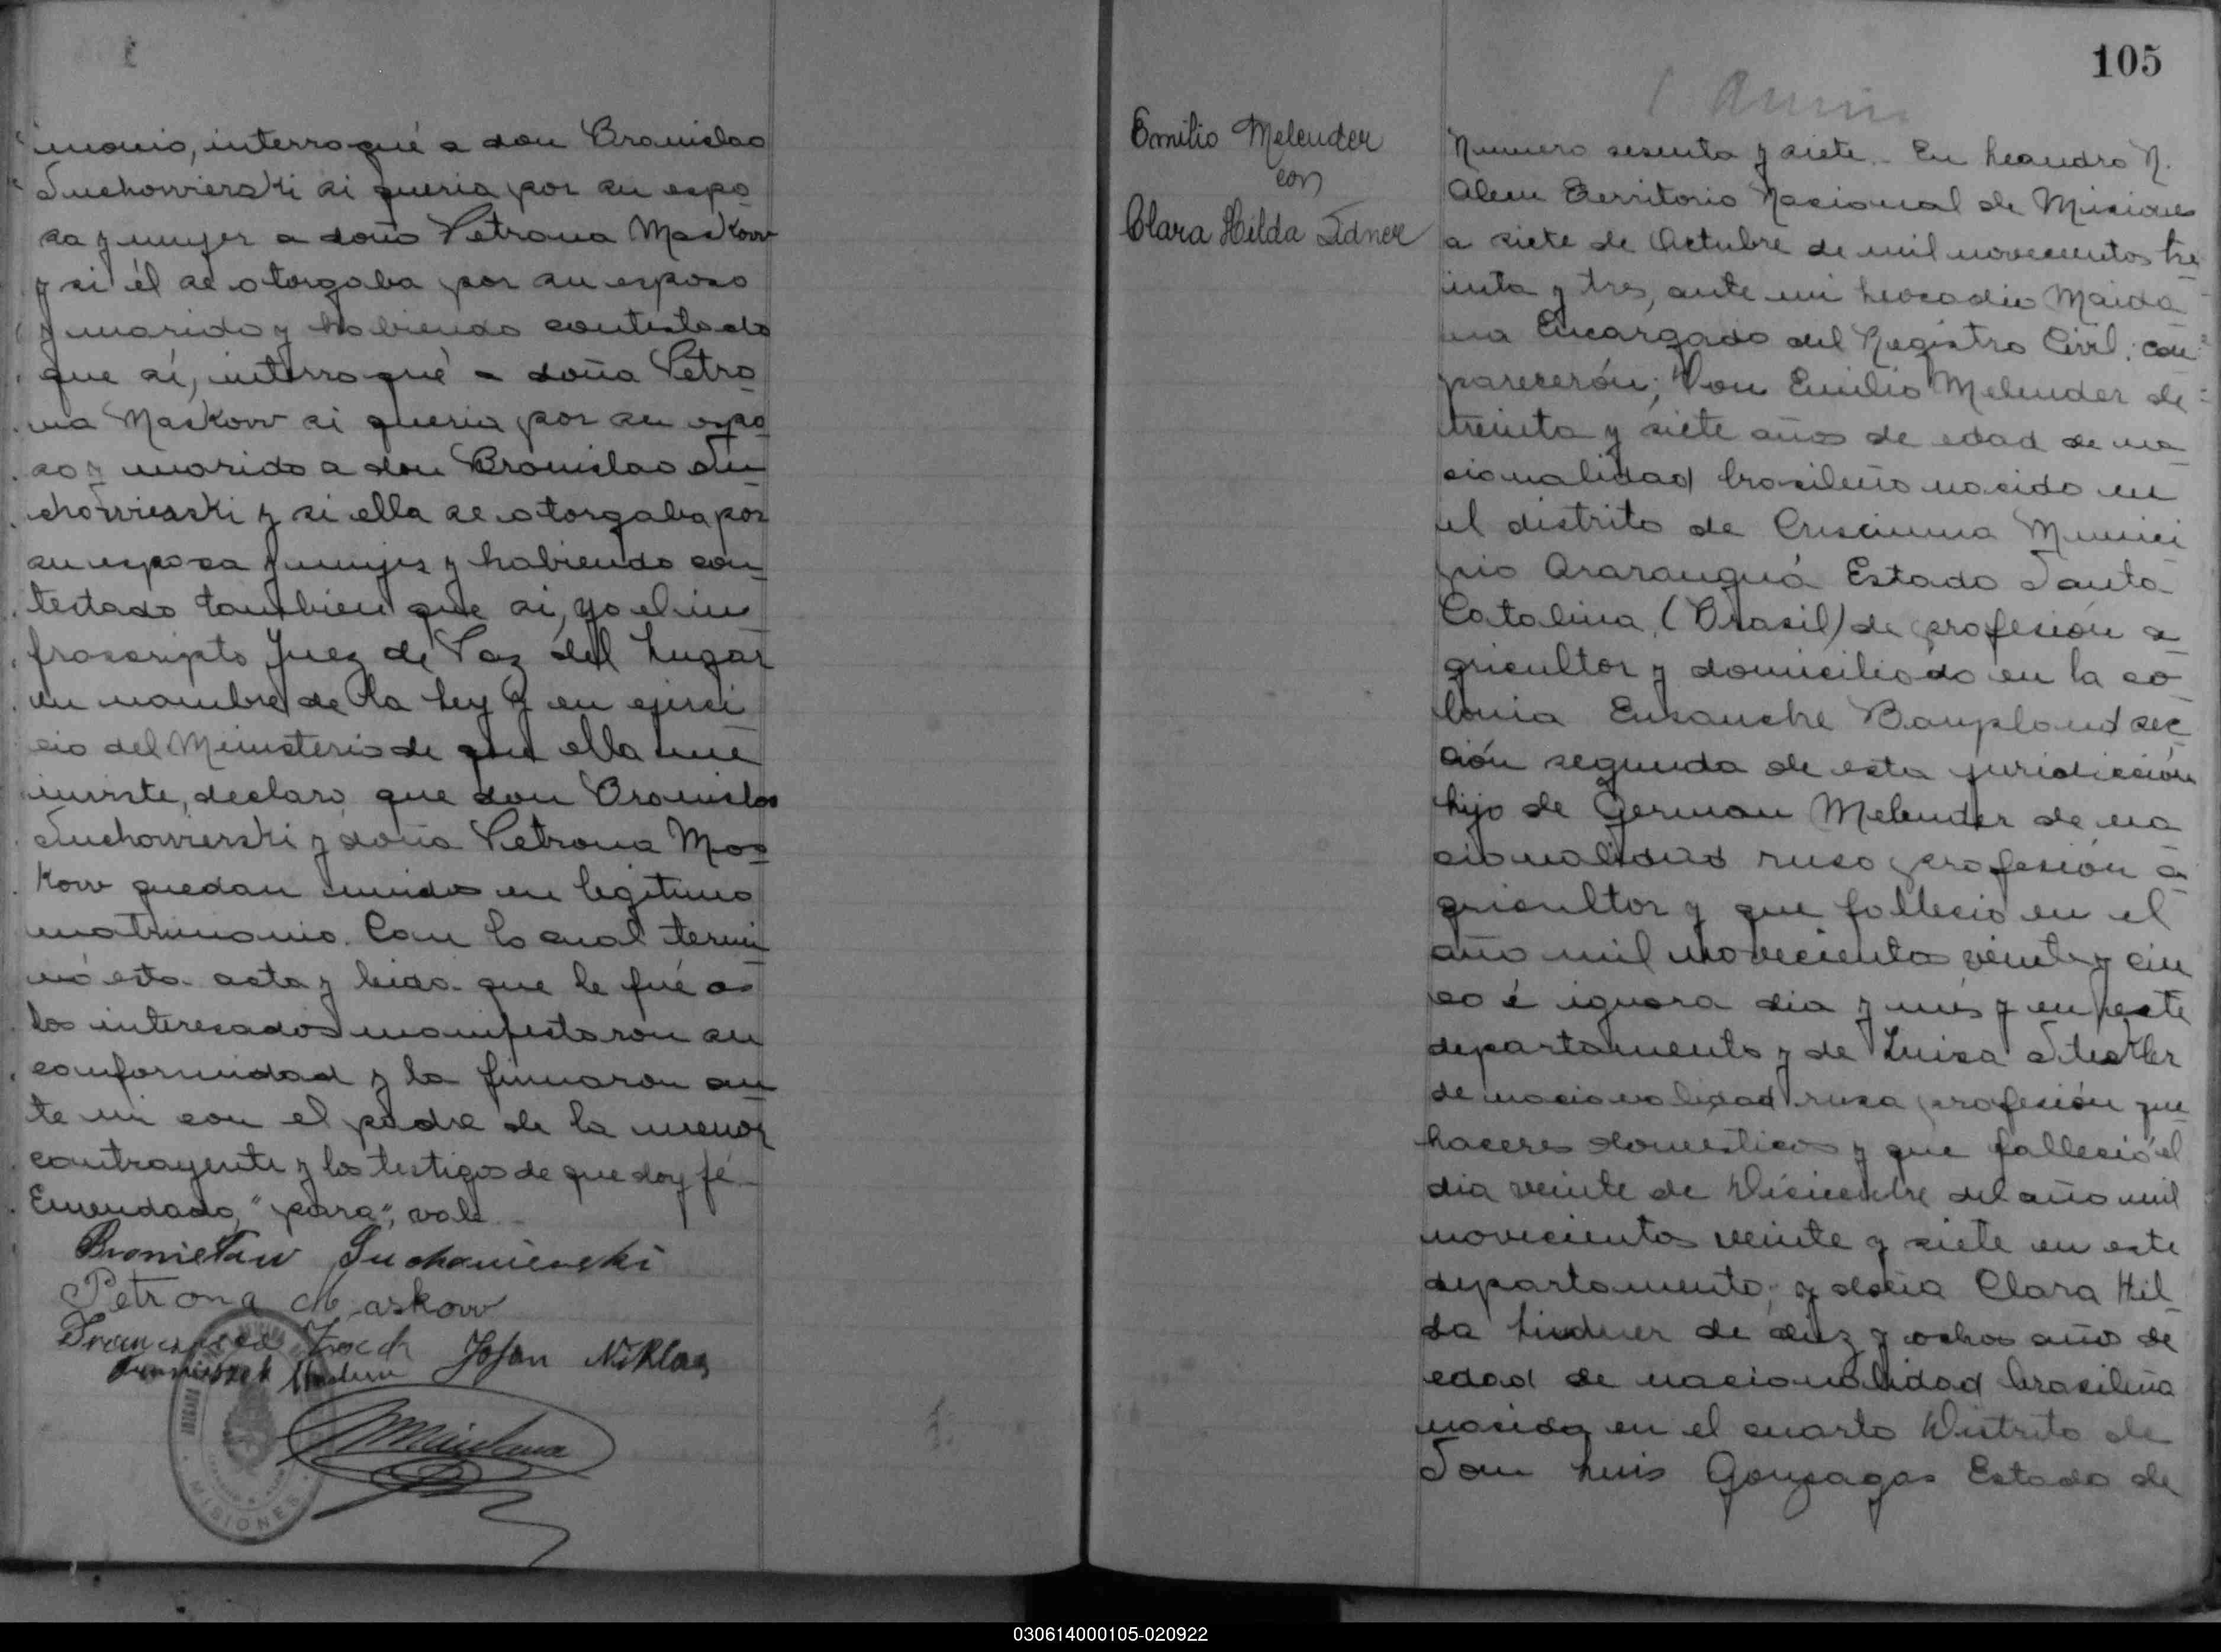 monio, interrogué a don Bronislao
Suchowierski si queria por su espo
sa y mujer a doña Petrona Maskow
y si él se otorgaba por su esposo
y marido y habiendo contestado
que sí, interrogué a doña Petro
na Maskow si queria por su espo
so y marido a don Bronislao Su
chowierski y si ella se otorgaba por
su esposa y mujer y habiendo con
testado tambien que si, yo el in
frascripto Juez de Paz del Lugar
en nombre de la Ley y en ejerci
cio del Ministerio de que ella me
inviste, declaro que don Bronislao
Suchowierski y doña Petrona Mas
kow quedan unidos en legitimo
matrimonio. Con lo cual termi
nó esta acta y leida que le fué a
los interesados manifestaron su
conformidad y la firmaron an
te mi con el padre de la menor
contrayente y los testigos de que doy fé.
Emendado, "para", vale.
Bronieław Suchowierski
Petrona Maskow
Josan Niklas
MISIONES
105
Emilio Melender
con
Clara Hilda Lidner
Numero sesenta y siete. En Leandro N.
Alem Territorio Nacional de Misiones
a siete de Octubre de mil novecientos tre
inta y tres, ante mi Leocadio Maida
na Encargado del Registro Civil, com
parecerón; Don Emilio Melender de
treinta y siete años de edad de na
cionalidad brasileño nacido en
el distrito de Cresciuma Munici
pio Araranguá Estado Santa
Catalina, (Brasil) de profesión a
gricultor y domiciliado en la co
lonia Ensanche Bonpland sec
ción segunda de esta juridicción
hijo de German Melender de na
cionalidad ruso profesión a
gricultor y que falleció en el
año mil novecientos veinte y cin
co é ignora dia y mes y en este
departamento y de Luisa
de nacionalidad rusa profesión que
haceres domesticos y que falleció el
dia veinte de Diciembre del año mil
novecientos veinte y siete en este
departamento; y doña Clara Hil
da Lindner de diez y ocho años de
edad de nacionalidad brasileña
nacida en el cuarto Distrito de
San Luis Gonzagas Estado de
030614000105-020922